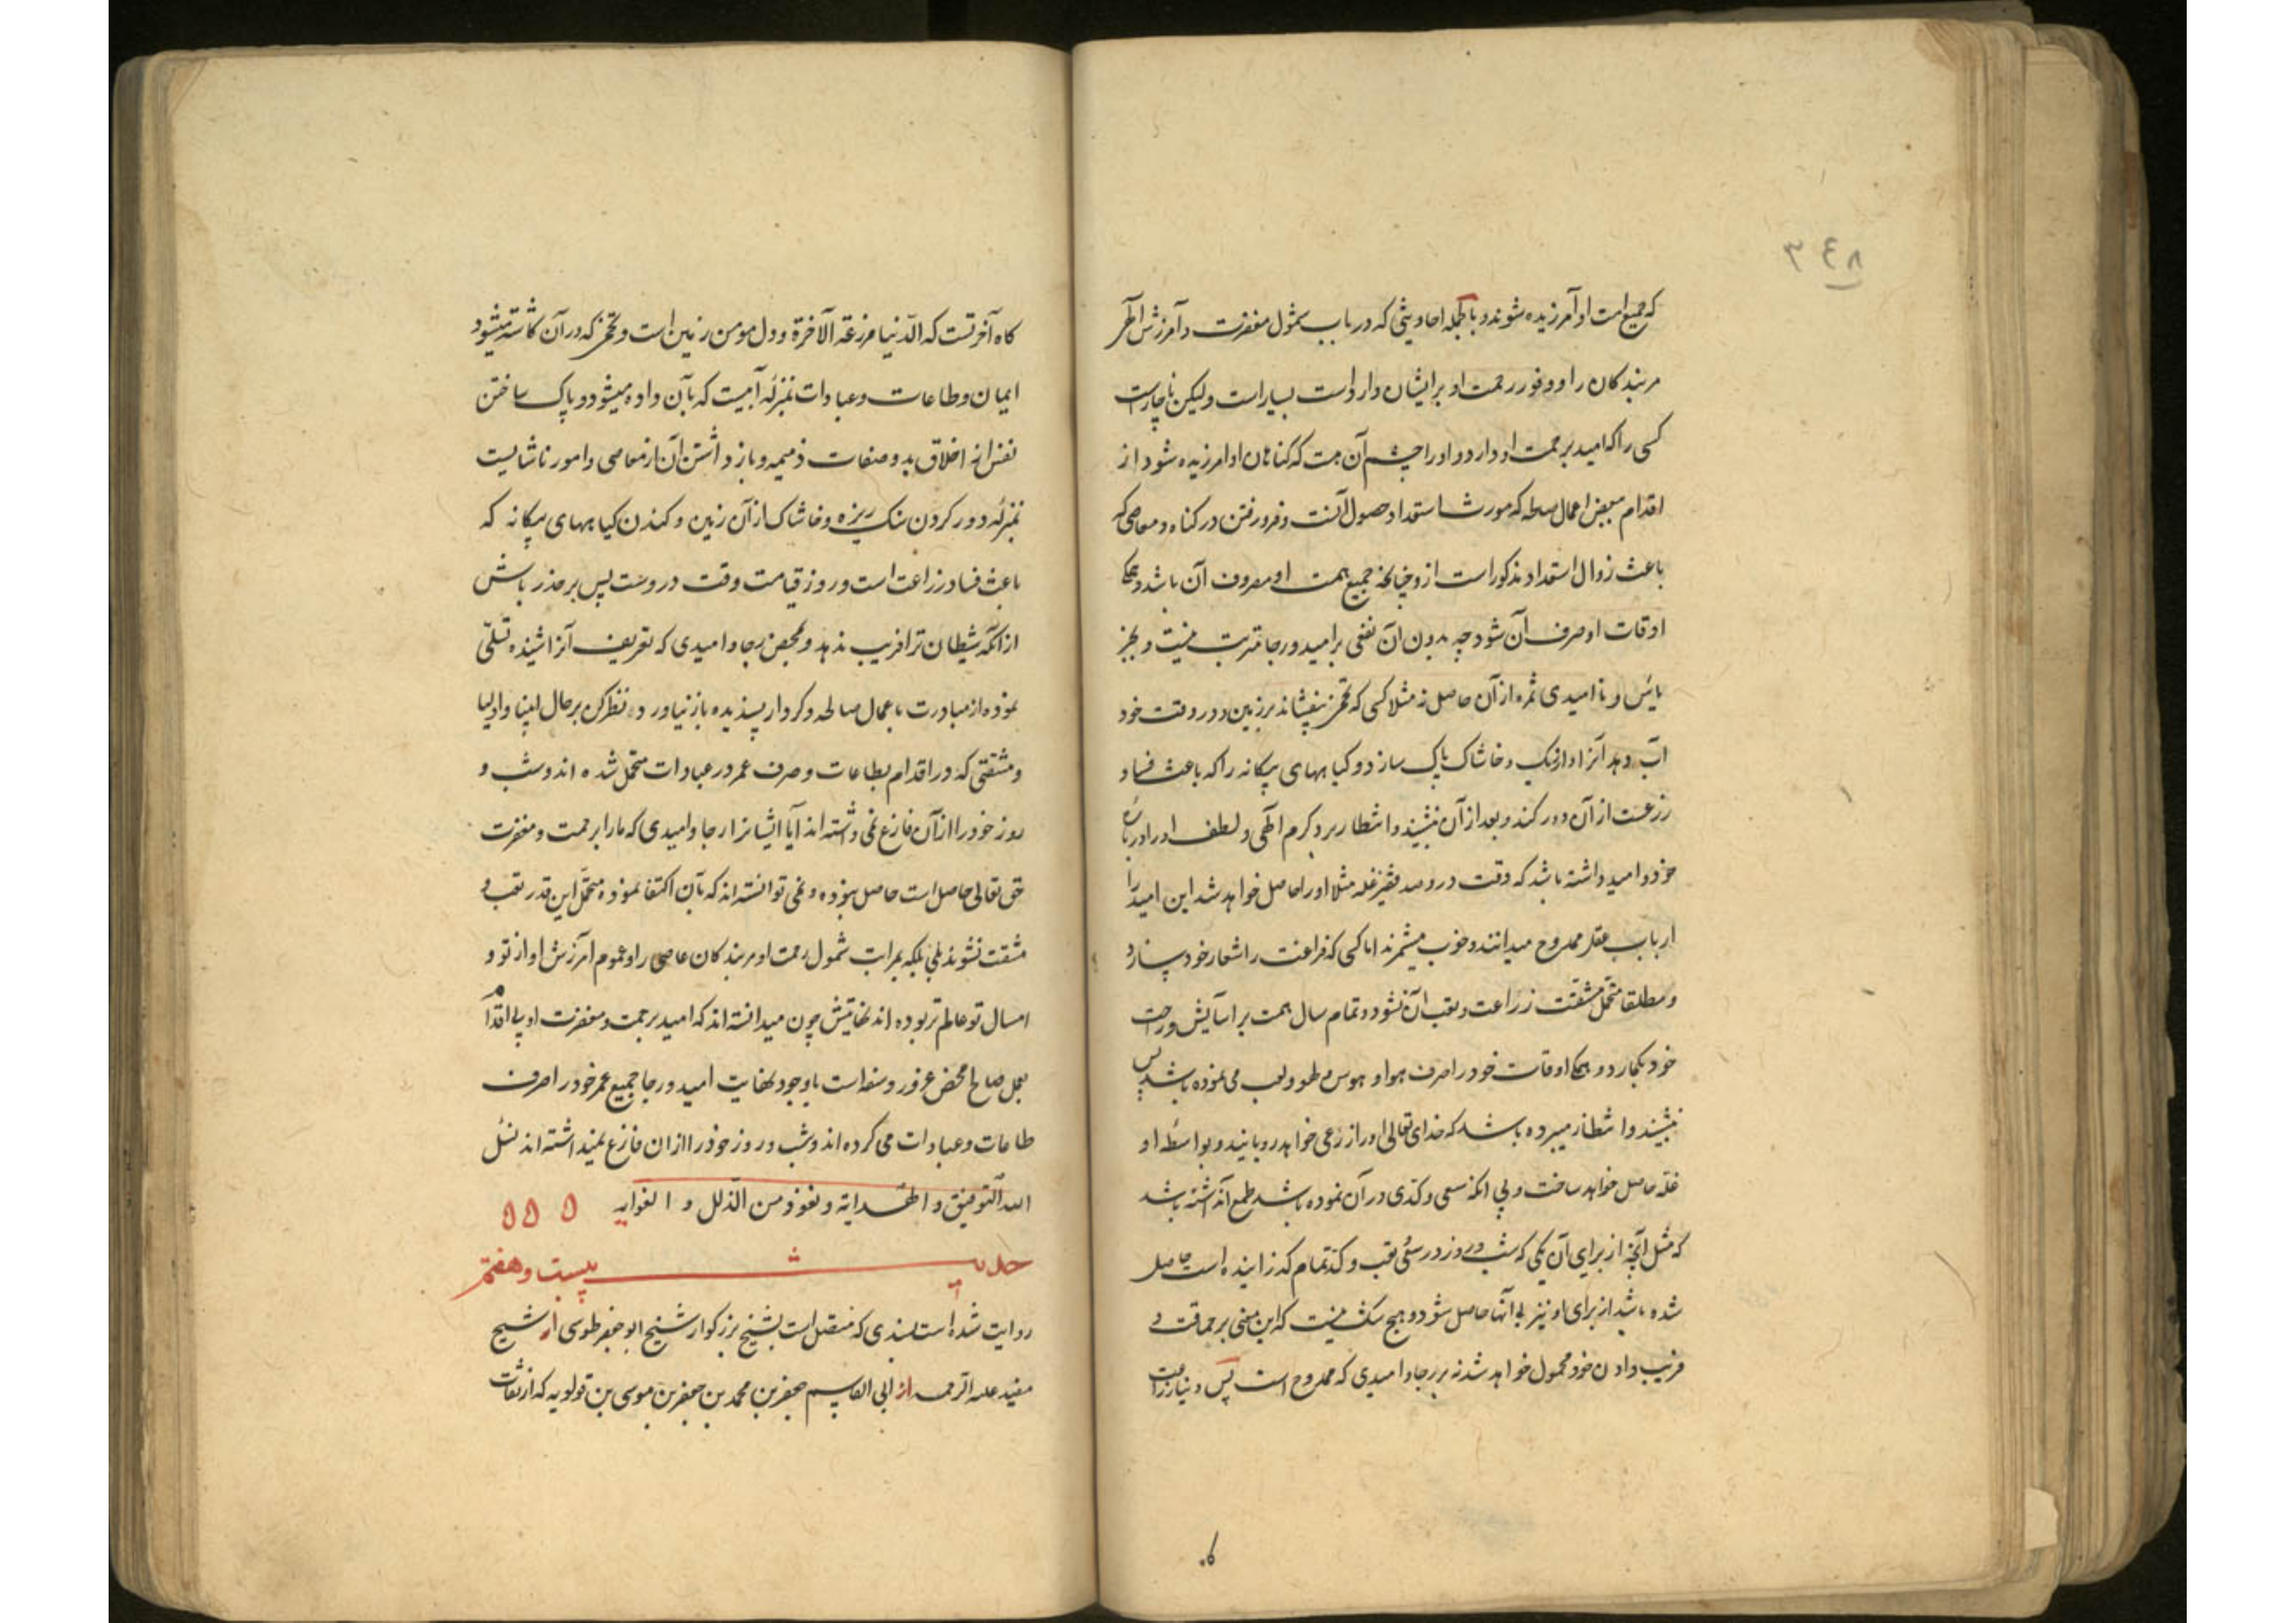 ٣٤٨
که جمیع امت او آمرزیده شوند و بالجمله احادیثی که در باب شمول مغفرت و آمرزش الهی
مر بندکان را و وفور رحمت او بر ایشان وارد است بسیار است ولیکن ناچار است
کسی را که امید برحمت او دارد و او را چشم آن هست که کناهان او امرزیده شود از
اقدام ببعض اعمال صالحه که مورث استعداد حصول آنست و فرو رفتن در کناه و معاصی که
باعث زوال استعداد مذکور است از و چنانچه جمیع همت او مصروف آن باشد و همکی
اوقات او صرف آن شود چه بدون آن نفعی بر امید و رجا مترتب نیست و بجز
یاس و ناامیدی ثمره از آن حاصل نه مثلا کسی که تخمی بیفشاند بر زمین و در وقت خود
آب دهد آنرا و از سنک و خاشاک پاک سازد و کیاههای بیکانه را که باعث فساد
زرعست از آن دور کند و بعد از آن نشیند و انتظار برد کرم الهی و لطف او را در باره
خود و امید داشته باشد که وقت درو صد قفیز غله مثلا او را حاصل خواهد شد این امید را
ارباب عقل ممدوح میدانند و خوب میشمرند اما کسی که فراغت را شعار خود سازد
و مطلقا متحمل مشقت زراعت و تعب آن نشود و تمام سال همت بر آسایش و راحت
خود بکمارد و همکی اوقات خود را صرف هوا و هوس و لهو و لعب می نموده باشد پس
نشیند و انتظار میبرده باشد که خدای تعالی او را زرعی خواهد رویانید و بواسطه او
غله حاصل خواهد ساخت و بی انکه سعی و کدی در آن نموده باشد طمع آن داشته باشد
که مثل آنچه از برای آن یکی که شب و روز در سعی و تعب و کد تمام کذرانیده است حاصل
شده باشد از برای او نیز بی آنها حاصل شود و هیچ شک نیست که این معنی بر حماقت و
فریب دادن خود محمول خواهد شد نه بر رجا و امیدی که ممدوح است پس دنیا زراعت
کاه آخرتست که الدنیا مزرعة الآخرة و دل مومن زمین است و تخمی که در آن کاشته میشود
ایمان و طاعات و عبادات بمنزله آبیست که بآن داده میشود و پاک ساختن
نفس از اخلاق بد و صفات ذمیمه و باز داشتن آن از معاصی و امور ناشایست
بمنزله دور کردن سنک ریزه و خاشاک از آن زمین و کندن کیاههای بیکانه که
باعث فساد زراعت است و روز قیامت وقت دروست پس بر حذر باش
از آنکه شیطان ترا فریب ندهد و بمحض رجا و امیدی که تعریف آنرا شنیده تسلی
نموده از مبادرت باعمال صالحه و کردار پسندیده باز نیاورد و نظر کن بر حال انبیا و اولیا
و مشقتی که در اقدام بطاعات و صرف عمر در عبادات متحمل شده اند و شب و
روز خود را از آن فارغ نمی داشته اند آیا ایشانرا رجا و امیدی که ما را برحمت و مغفرت
حق تعالی حاصل است حاصل نبوده و نمی توانسته اند که بآن اکتفا نموده متحمل این قدر تعب و
مشقت نشوند بلی بلکه بمراتب شمول رحمت او مر بندکان عاصی را و عموم آمرزش او از تو و
امثال تو عالم تر بوده اند نهایتش چون میدانسته اند که امید برحمت و مغفرت او بی اقدام
بعمل صالح محض غرور و سفه است با وجود نهایت امید و رجا جمیع عمر خود را صرف
طاعات و عبادات می کرده اند و شب و روز خود را از آن فارغ نمیداشته اند نسئل
الله التوفیق و الهدایة و نعوذ من الذلل و الغوایه ۵ ۵ ۵
حدیث بیست و هفتم
روایت شده است بسندی که متصل است بشیخ بزرکوار شیخ ابو جعفر طوسی از شیخ
مفید علیه الرحمه از ابی القاسم جعفر بن محمد بن جعفر بن موسی بن قولویه که از ثقات